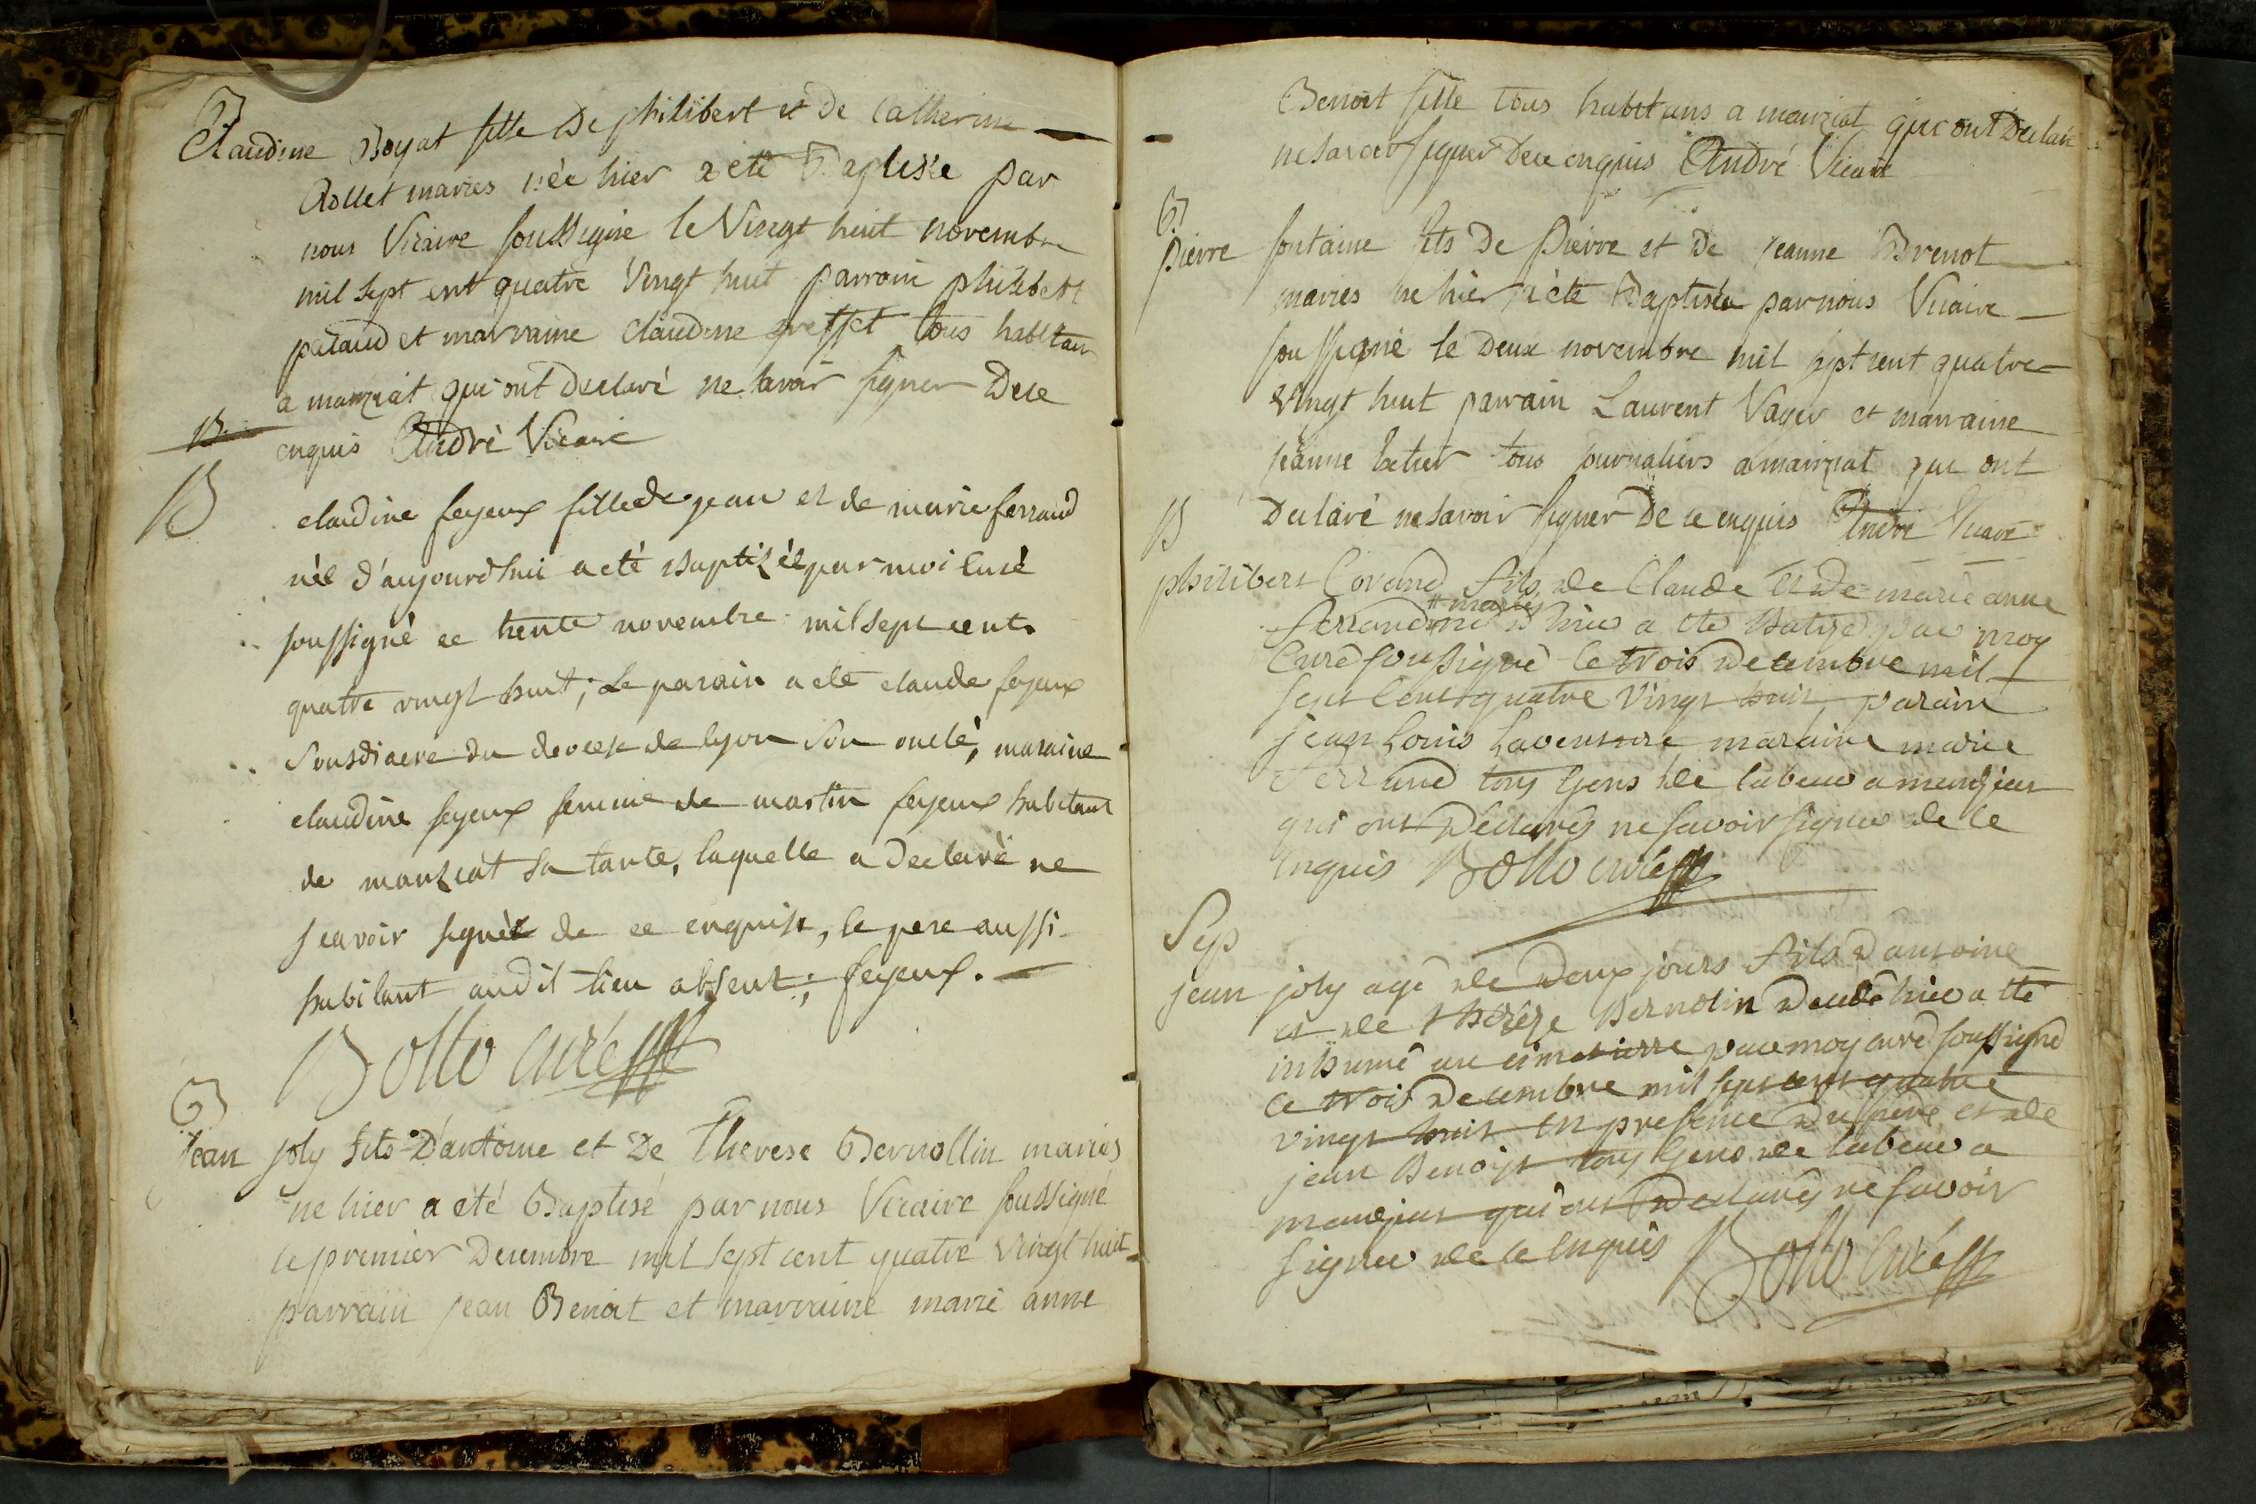 B
Claudine Boyat fille De philibert et De Catherine
Rollet maries née hier a eté Baptisée par
nous Vicaire soussigné le Vingt huit novembre
mil sept cent quatre Vingt huit parrain philibert
putaud et marraine claudine preffet tous habitans
a manziat qui ont declaré ne savoir signer Dece
enquis André Vicaire
B
B
claudine feyeux fille de jean et de marie ferraud
née d'aujourdhui a eté Baptizée par moi curé
soussigné ce trente novembre mil sept cent
quatre vingt huit; Le parain a eté claude feyeux
Sousdiacre du diocese de lyon son oncle, maraine
claudine feyeux femme de martin feyeux habitant
de manziat sa tante, laquelle a declaré ne
scavoir signer de ce enquise, le pere aussi
habitant audit lieu absent; feyeux.
Botto curé
B
Jean joly fils D'antoine et De Therese Bernollin mariés
né hier a eté Baptisé par nous Vicaire soussigné
le premier Decembre mil sept cent quatre Vingt huit
parrain jean Benoit et marraine marie anne
Benoit fille tous habitans a manziat qui ont Declaré
ne savoir signer Dece enquis André Vicaire
B
pierre fontaine fils De Pierre et De Jeanne Brenot
maries né hier a eté Baptisé par nous Vicaire
soussigné le Deux novembre mil sept cent quatre
Vingt huit parrain Laurent Vayer et marraine
jeanne tous journaliers a manziat qui ont
B
Declaré ne savoir signer De ce enquis André Vicaire
philibert Corand fils de Claude et De marie anne
ferrand # mariés né hier a ete Batizé par moy
Curé soussigné le trois decembre mil
sept cent quatre Vingt huit parain
jean Louis Laventure maraine marie
Ferrand tous gens de labeur a manziat
qui ont Declarés ne savoir signer de ce
enquis Botto curé
Sep
jean joly agé de deux jours fils d'antoine
et de thérèze Bernolin decedé hier a ete
inhumé au cimetierre par moy curé soussigné
ce trois Decembre mil sept cent quatre
vingt huit en presence du pere et de
jean Benoist tous gens de labeur a
manziat qui ont Declarés ne savoir
signer de ce enquis Botto Curé